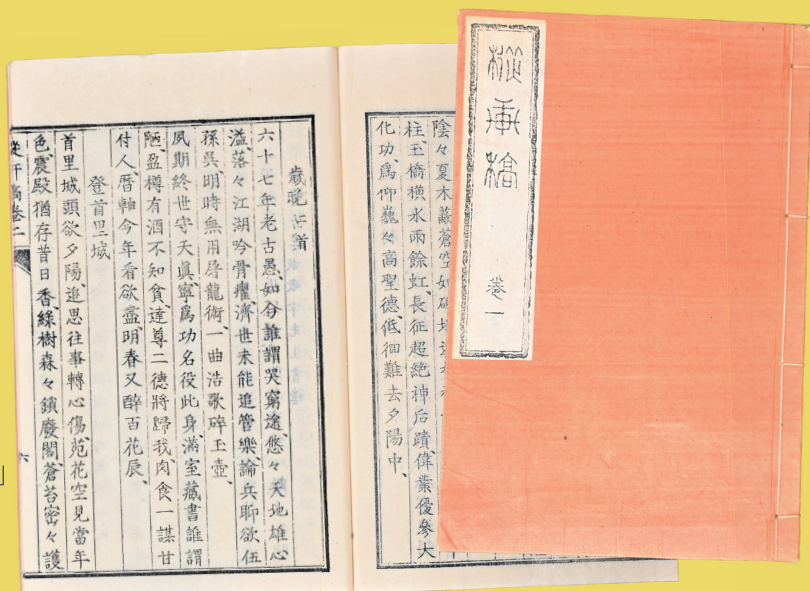 卷一
陰々夏木蔽蒼空、如
柱、玉橋横水雨餘虹、長征超絶神后蹟、偉業優參大
化功、爲仰巍々高聖德、低徊難去夕陽中、
歲晚二首
六十七年老古愚、如今誰謂哭窮途、悠々天地雄心
溢、落々江湖吟骨癯、濟世未能追管樂、論兵聊欲伍
孫吳、明時無用屠龍術、一曲浩歌碎玉壺、
夙期終世守天眞、寧爲功名役此身、滿室藏書誰謂
陋、盈樽有酒不知貧、達尊二德將歸我、肉食一謀甘
付人、曆軸今年看欲盡、明春又醉百花辰、
登首里城
首里城頭欲夕陽、追思往事轉心傷、苑花空見當年
色、震殿猶存昔日香、綠樹森々鎖廢閣、蒼苔密々護
軒稿卷二
六